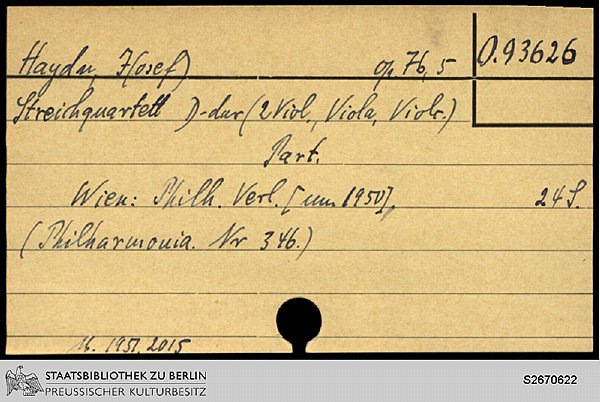 Haydn, J(osef) op. 76, 5
O.93626
Streichquartett D-dur (2 Viol., Viola, Violc.)
Part.
Wien: Philh. Verl. [um 1950], 24 S.
(Philharmonia. Nr 346.)
M. 1951, 2015
STAATSBIBLIOTHEK ZU BERLIN
PREUSSISCHER KULTURBESITZ
S2670622